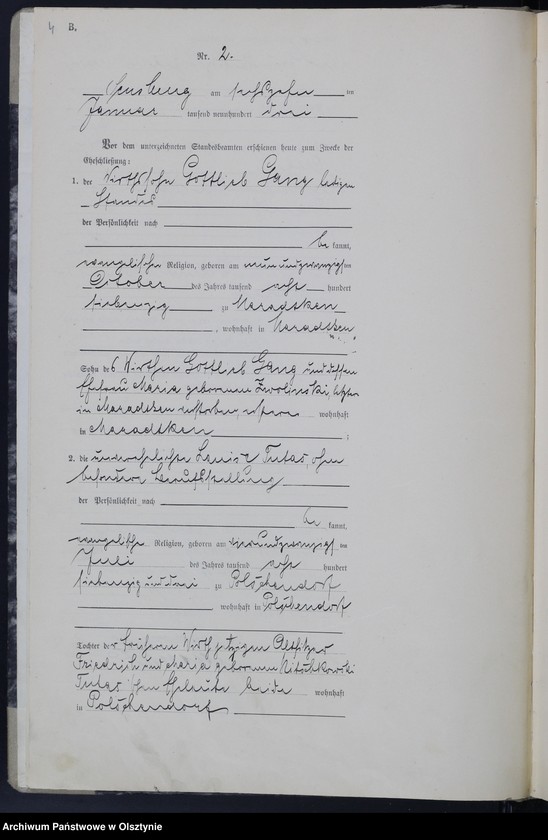 4 B.
Nr. 2.
Sensburg am sechszehn ten
Januar tausend neunhundert drei
Vor dem unterzeichneten Standesbeamten erschienen heute zum Zwecke der
Eheschließung:
1. der Wirthssohn Gottlieb Gang ledigen
Standes
der Persönlichkeit nach
be kannt,
evangelischer Religion, geboren am neunundzwanzigsten
October des Jahres tausend acht hundert
siebenzig zu Maradtken
, wohnhaft in Maradtken
Sohn des Wirthen Gottlieb Gang und dessen
Ehefrau Maria geborenen Zwolinski, letztere
in Maradtken verstorben, ersterer wohnhaft
in Maradtken ;
2. die unverehelichte Louise Tutas, ohne
besondere Berufsstellung
der Persönlichkeit nach
be kannt,
evangelischer Religion, geboren am vierundzwanzigsten
Juli des Jahres tausend acht hundert
siebenzig und drei zu Polschendorf
wohnhaft in Polschendorf
Tochter der früheren Wirth jetzigen Altsitzer
Friedrich und Maria geborenen
Tutas'schen Eheleute beide wohnhaft
in Polschendorf
Archiwum Państwowe w Olsztynie